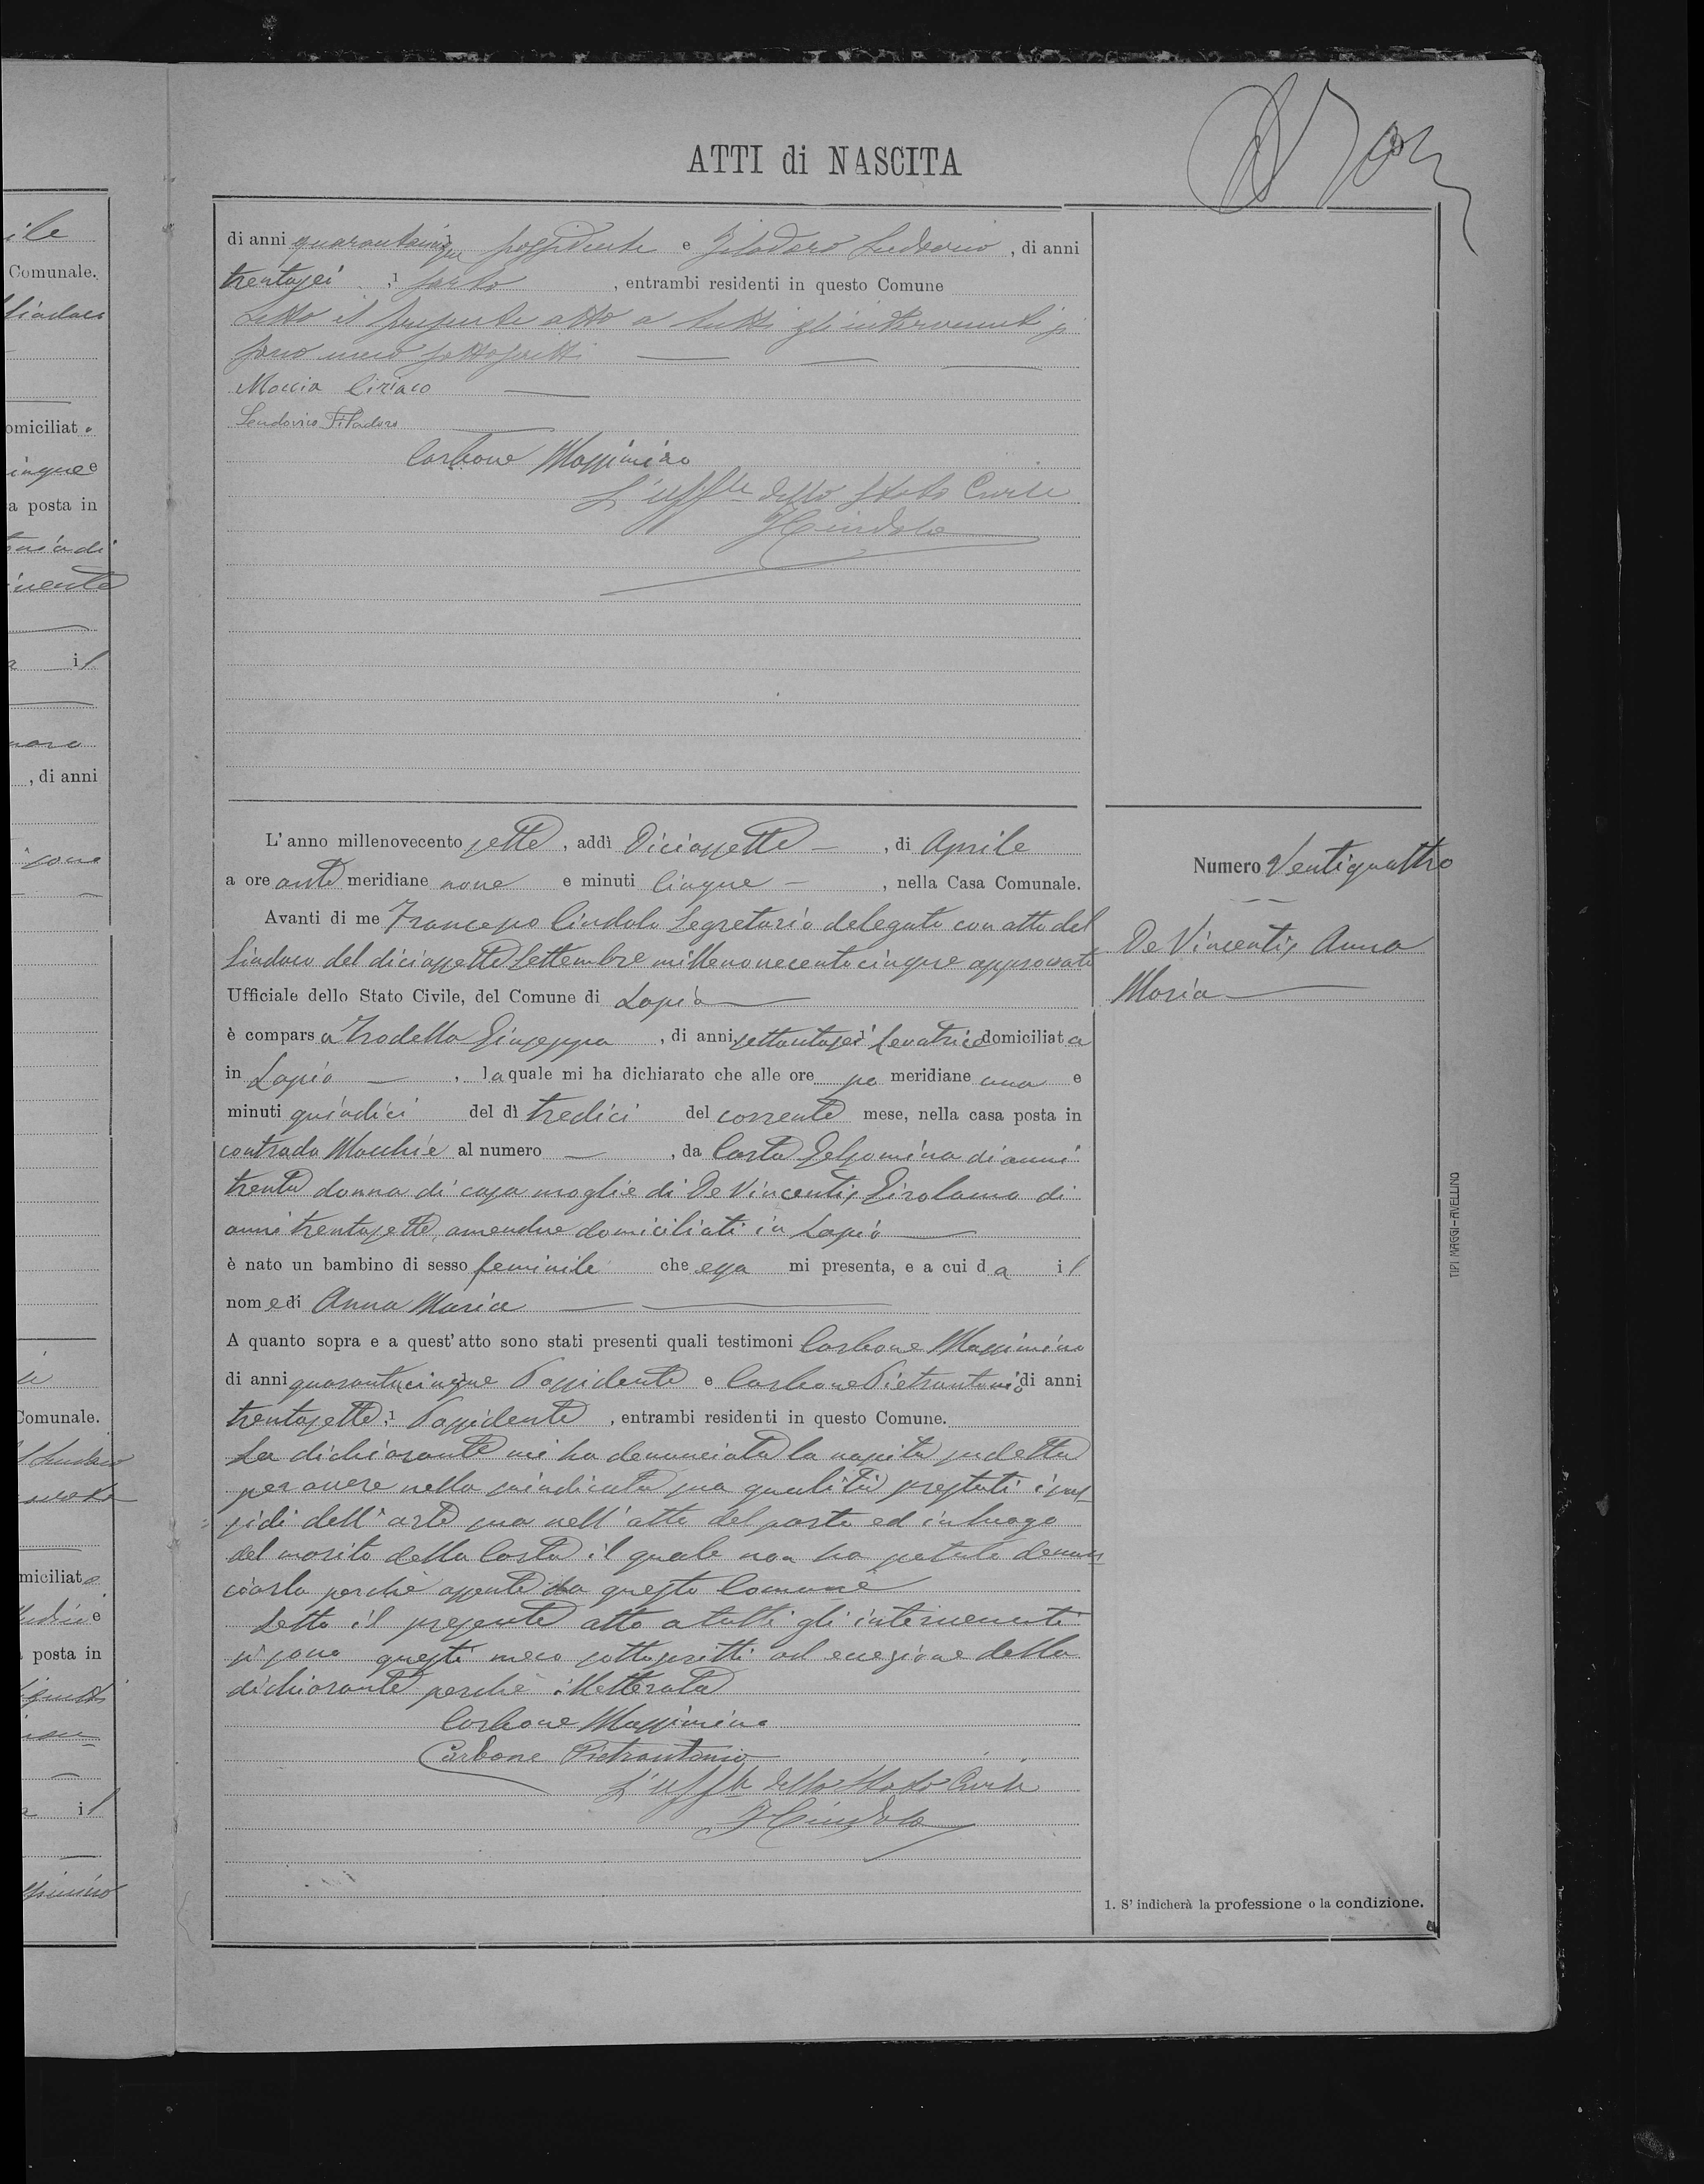 ile
Comunale.
Sindaco
omiciliato
cinque e
a posta in
inente
il
, di anni
sono
Comunale.
miciliat
e
posta in
il
ATTI di NASCITA
di anni quarantacinque possidente e Filadoro Ludovico, di anni
trentasei ,¹ sarto , entrambi residenti in questo Comune
Letto il presente atto a tutti gl'intervenuti si
sono meco sottoscritti
Moccia Ciriaco
Lendovico Filadoro
Carbone Massimino
L'uffle dello Stato Civile
FCindolo
L'anno millenovecento sette, addì diciassette, di Aprile
a ore anti meridiane nove e minuti cinque, nella Casa Comunale.
Avanti di me Francesco Cindolo Segretario delegato con atto del
Sindaco del diciassette Settembre millenovecentocinque approvato
Ufficiale dello Stato Civile, del Comune di Lapio
è comparsa Trodella Giuseppa, di anni settantasei ¹ levatrice domiciliata
in Lapio, la quale mi ha dichiarato che alle ore po meridiane una e
minuti quindici del dì tredici del corrente mese, nella casa posta in
contrada Macchie al numero —, da Costa Gelsomina di anni
trenta donna di casa moglie di De Vincentis Girolamo di
anni trentasette, amendue domiciliati in Lapio
è nato un bambino di sesso feminile che essa mi presenta, e a cui da il
nome di Anna Maria
A quanto sopra e a quest' atto sono stati presenti quali testimoni Carbone Massimino
di anni quarantacinque Possidente e Carbone Pietrantonio di anni
trentasette,¹ Possidente, entrambi residenti in questo Comune.
La dichiarante mi ha denunciata la nascita sudetta
per avere nella suindicata sua qualità prestati i sus-
sidi dell'arte sua nell'atto del parto ed in luogo
del marito della Costa il quale non ha potuto denun
ciarla perchè assente da questo Comune
Letto il presente atto a tutti gli intervenuti
si sono questi meco sottoscritti ad eccezione della
dichiarante perchè illetterata
Carbone Massimino
Carbone Pietrantonio
L'uffle dello Stato Civile
FCindolo
Numero Ventiquattro
De Vincentis Anna
Maria
1. S' indicherà la professione o la condizione.
TIPI MAGGI-AVELLINO